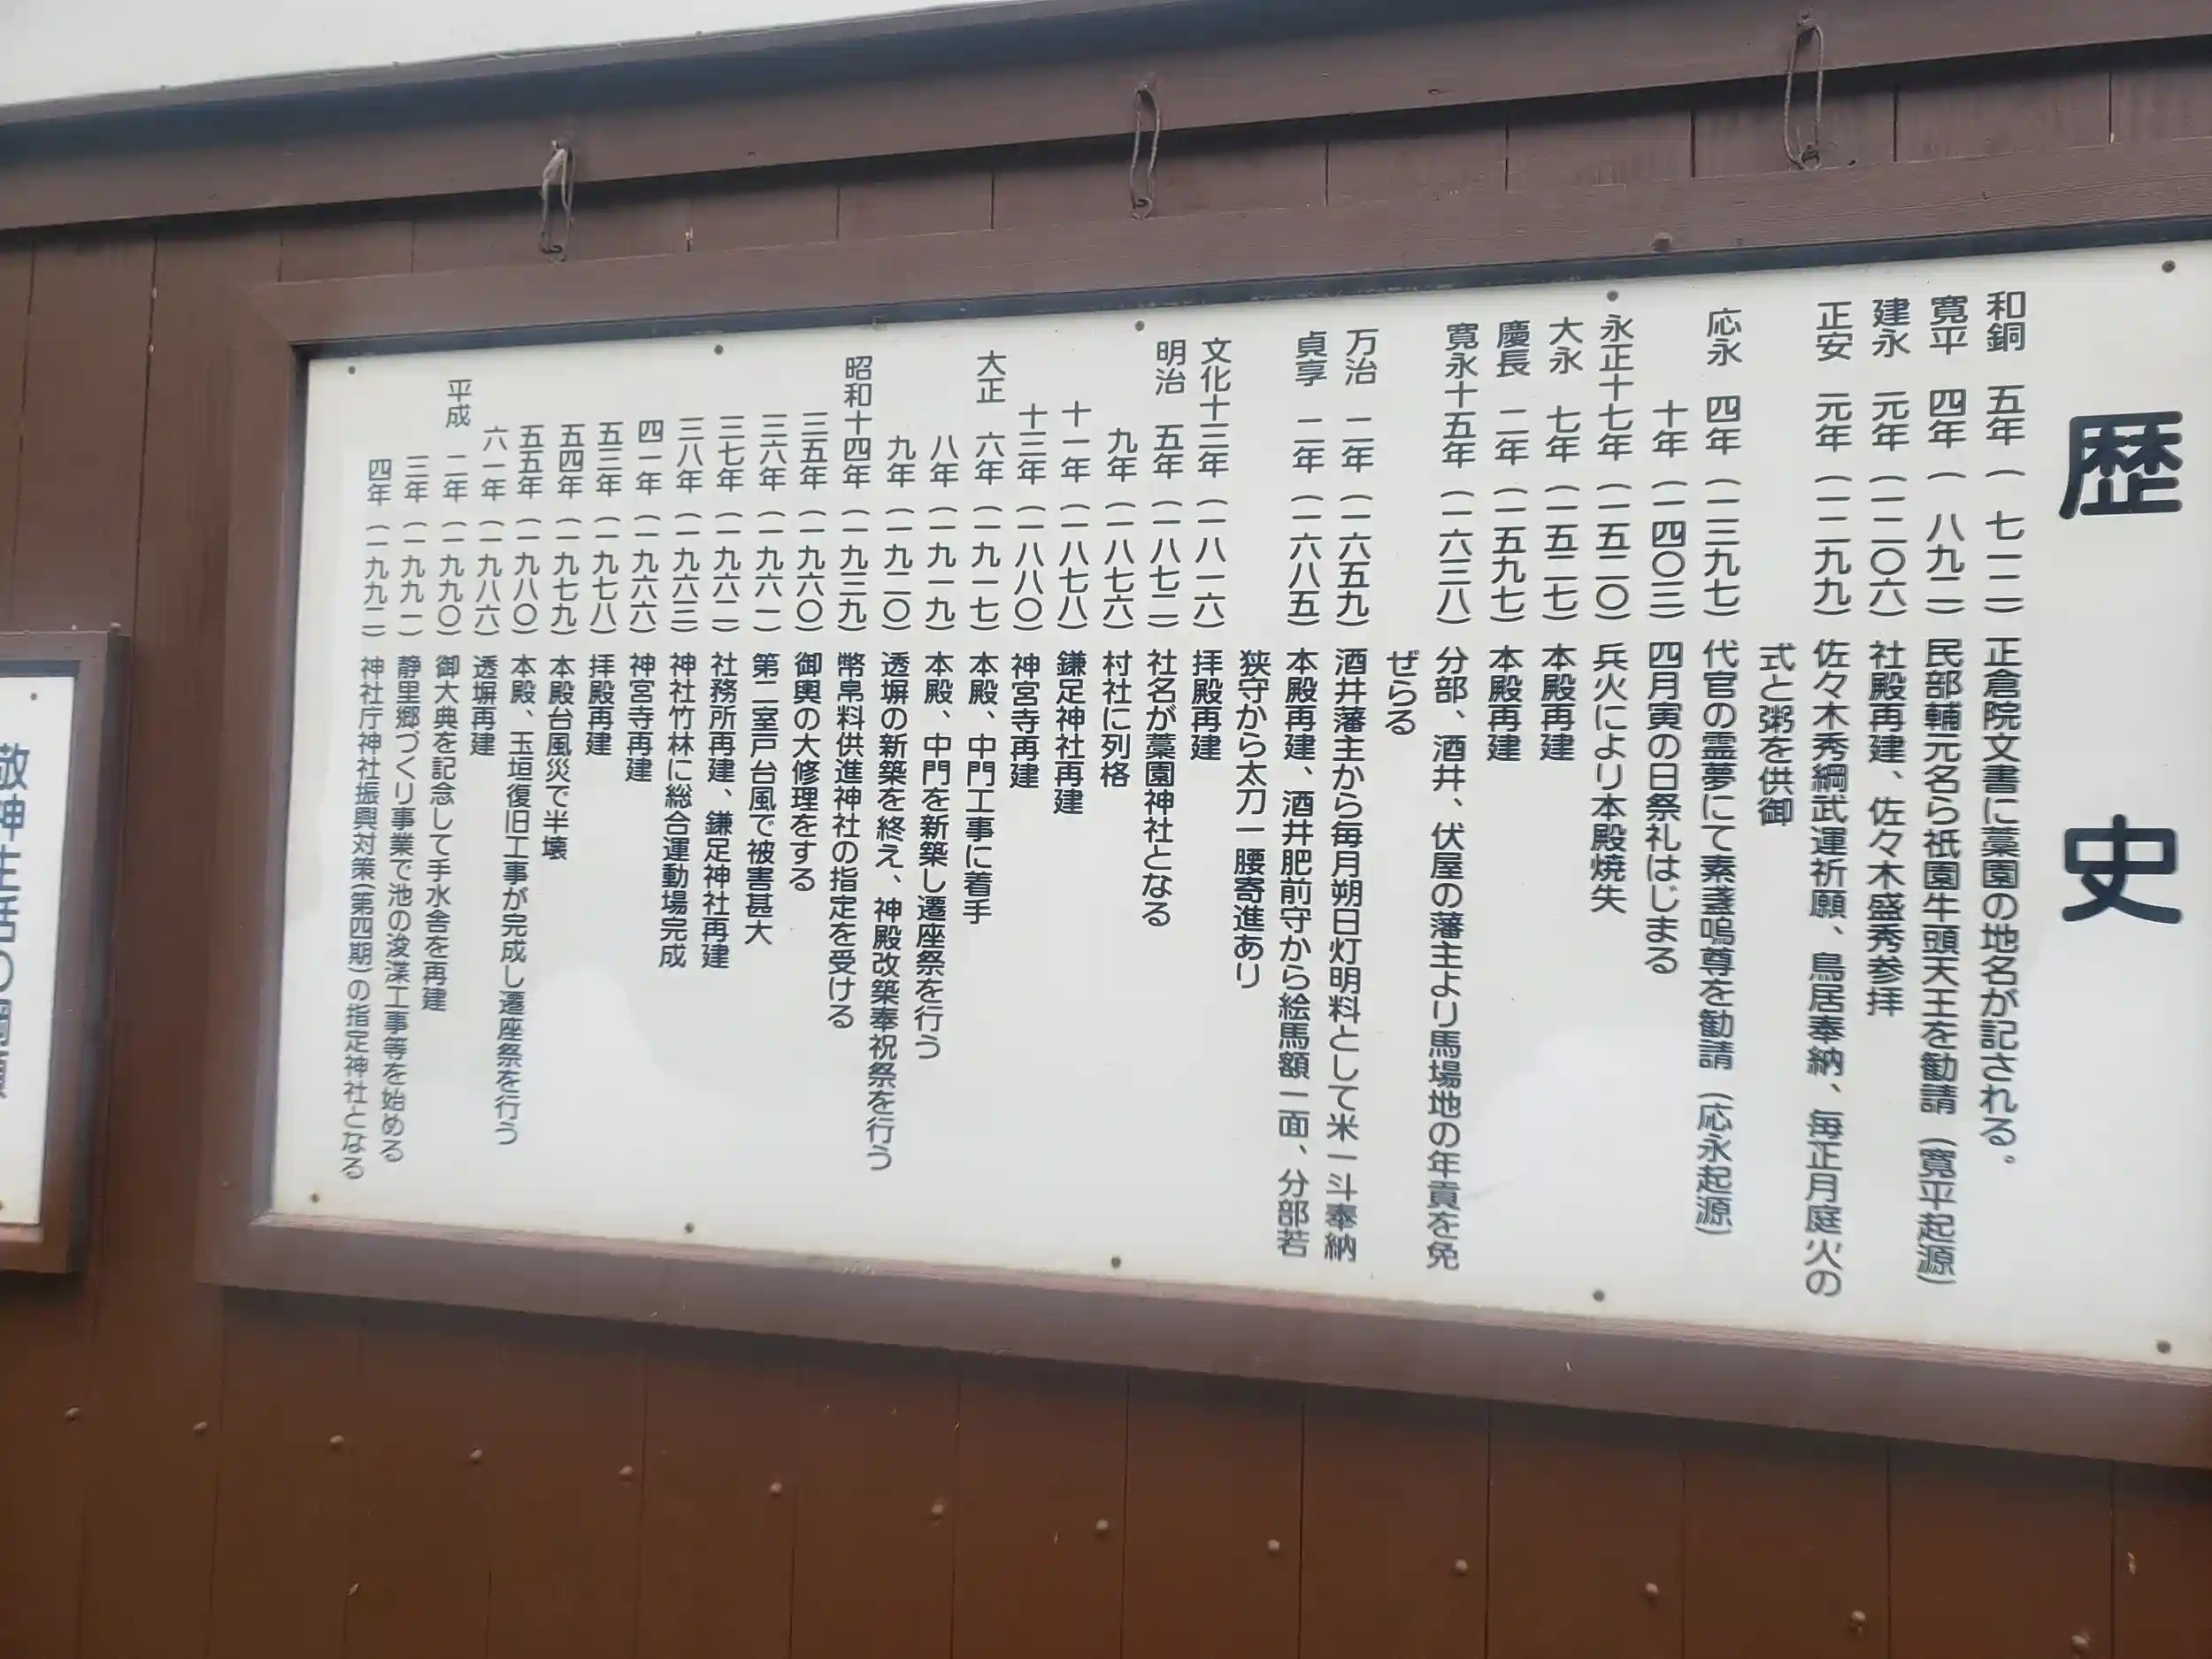 歴史
和銅 五年(七一二)正倉院文書に藁園の地名が記される。
寛平 四年(八九二)民部輔元名ら祇園牛頭天王を勧請(寛平起源)
建永 元年(一二〇六)社殿再建、佐々木盛秀参拝
正安 元年(一二九九)佐々木秀綱武運祈願、鳥居奉納、毎正月庭火の
式と粥を供御
応永 四年(一三九七)代官の霊夢にて素盞嗚尊を勧請(応永起源)
十年(一四〇三)四月寅の日祭礼はじまる
永正十七年(一五二〇)兵火により本殿焼失
大永 七年(一五二七)本殿再建
慶長 二年(一五九七)本殿再建
寛永十五年(一六三八)分部、酒井、伏屋の藩主より馬場地の年貢を免
ぜらる
万治 二年(一六五九)酒井藩主から毎月朔日灯明料として米一斗奉納
貞享 二年(一六八五)本殿再建、酒井肥前守から絵馬額一面、分部若
狭守から太刀一腰寄進あり
文化十三年(一八一六)拝殿再建
明治 五年(一八七二)社名が藁園神社となる
九年(一八七六)村社に列格
十一年(一八七八)鎌足神社再建
十三年(一八八〇)神宮寺再建
大正 六年(一九一七)本殿、中門工事に着手
八年(一九一九)本殿、中門を新築し遷座祭を行う
九年(一九二〇)透塀の新築を終え、神殿改築奉祝祭を行う
昭和十四年(一九三九)幣帛料供進神社の指定を受ける
三五年(一九六〇)御輿の大修理をする
三六年(一九六一)第二室戸台風で被害甚大
三七年(一九六二)社務所再建、鎌足神社再建
三八年(一九六三)神社竹林に総合運動場完成
四一年(一九六六)神宮寺再建
五三年(一九七八)拝殿再建
五四年(一九七九)本殿台風災で半壊
五五年(一九八〇)本殿、玉垣復旧工事が完成し遷座祭を行う
六一年(一九八六)透塀再建
平成 二年(一九九〇)御大典を記念して手水舎を再建
三年(一九九一)静里郷づくり事業で池の浚渫工事等を始める
四年(一九九二)神社庁神社振興対策(第四期)の指定神社となる
敬神生活の綱領